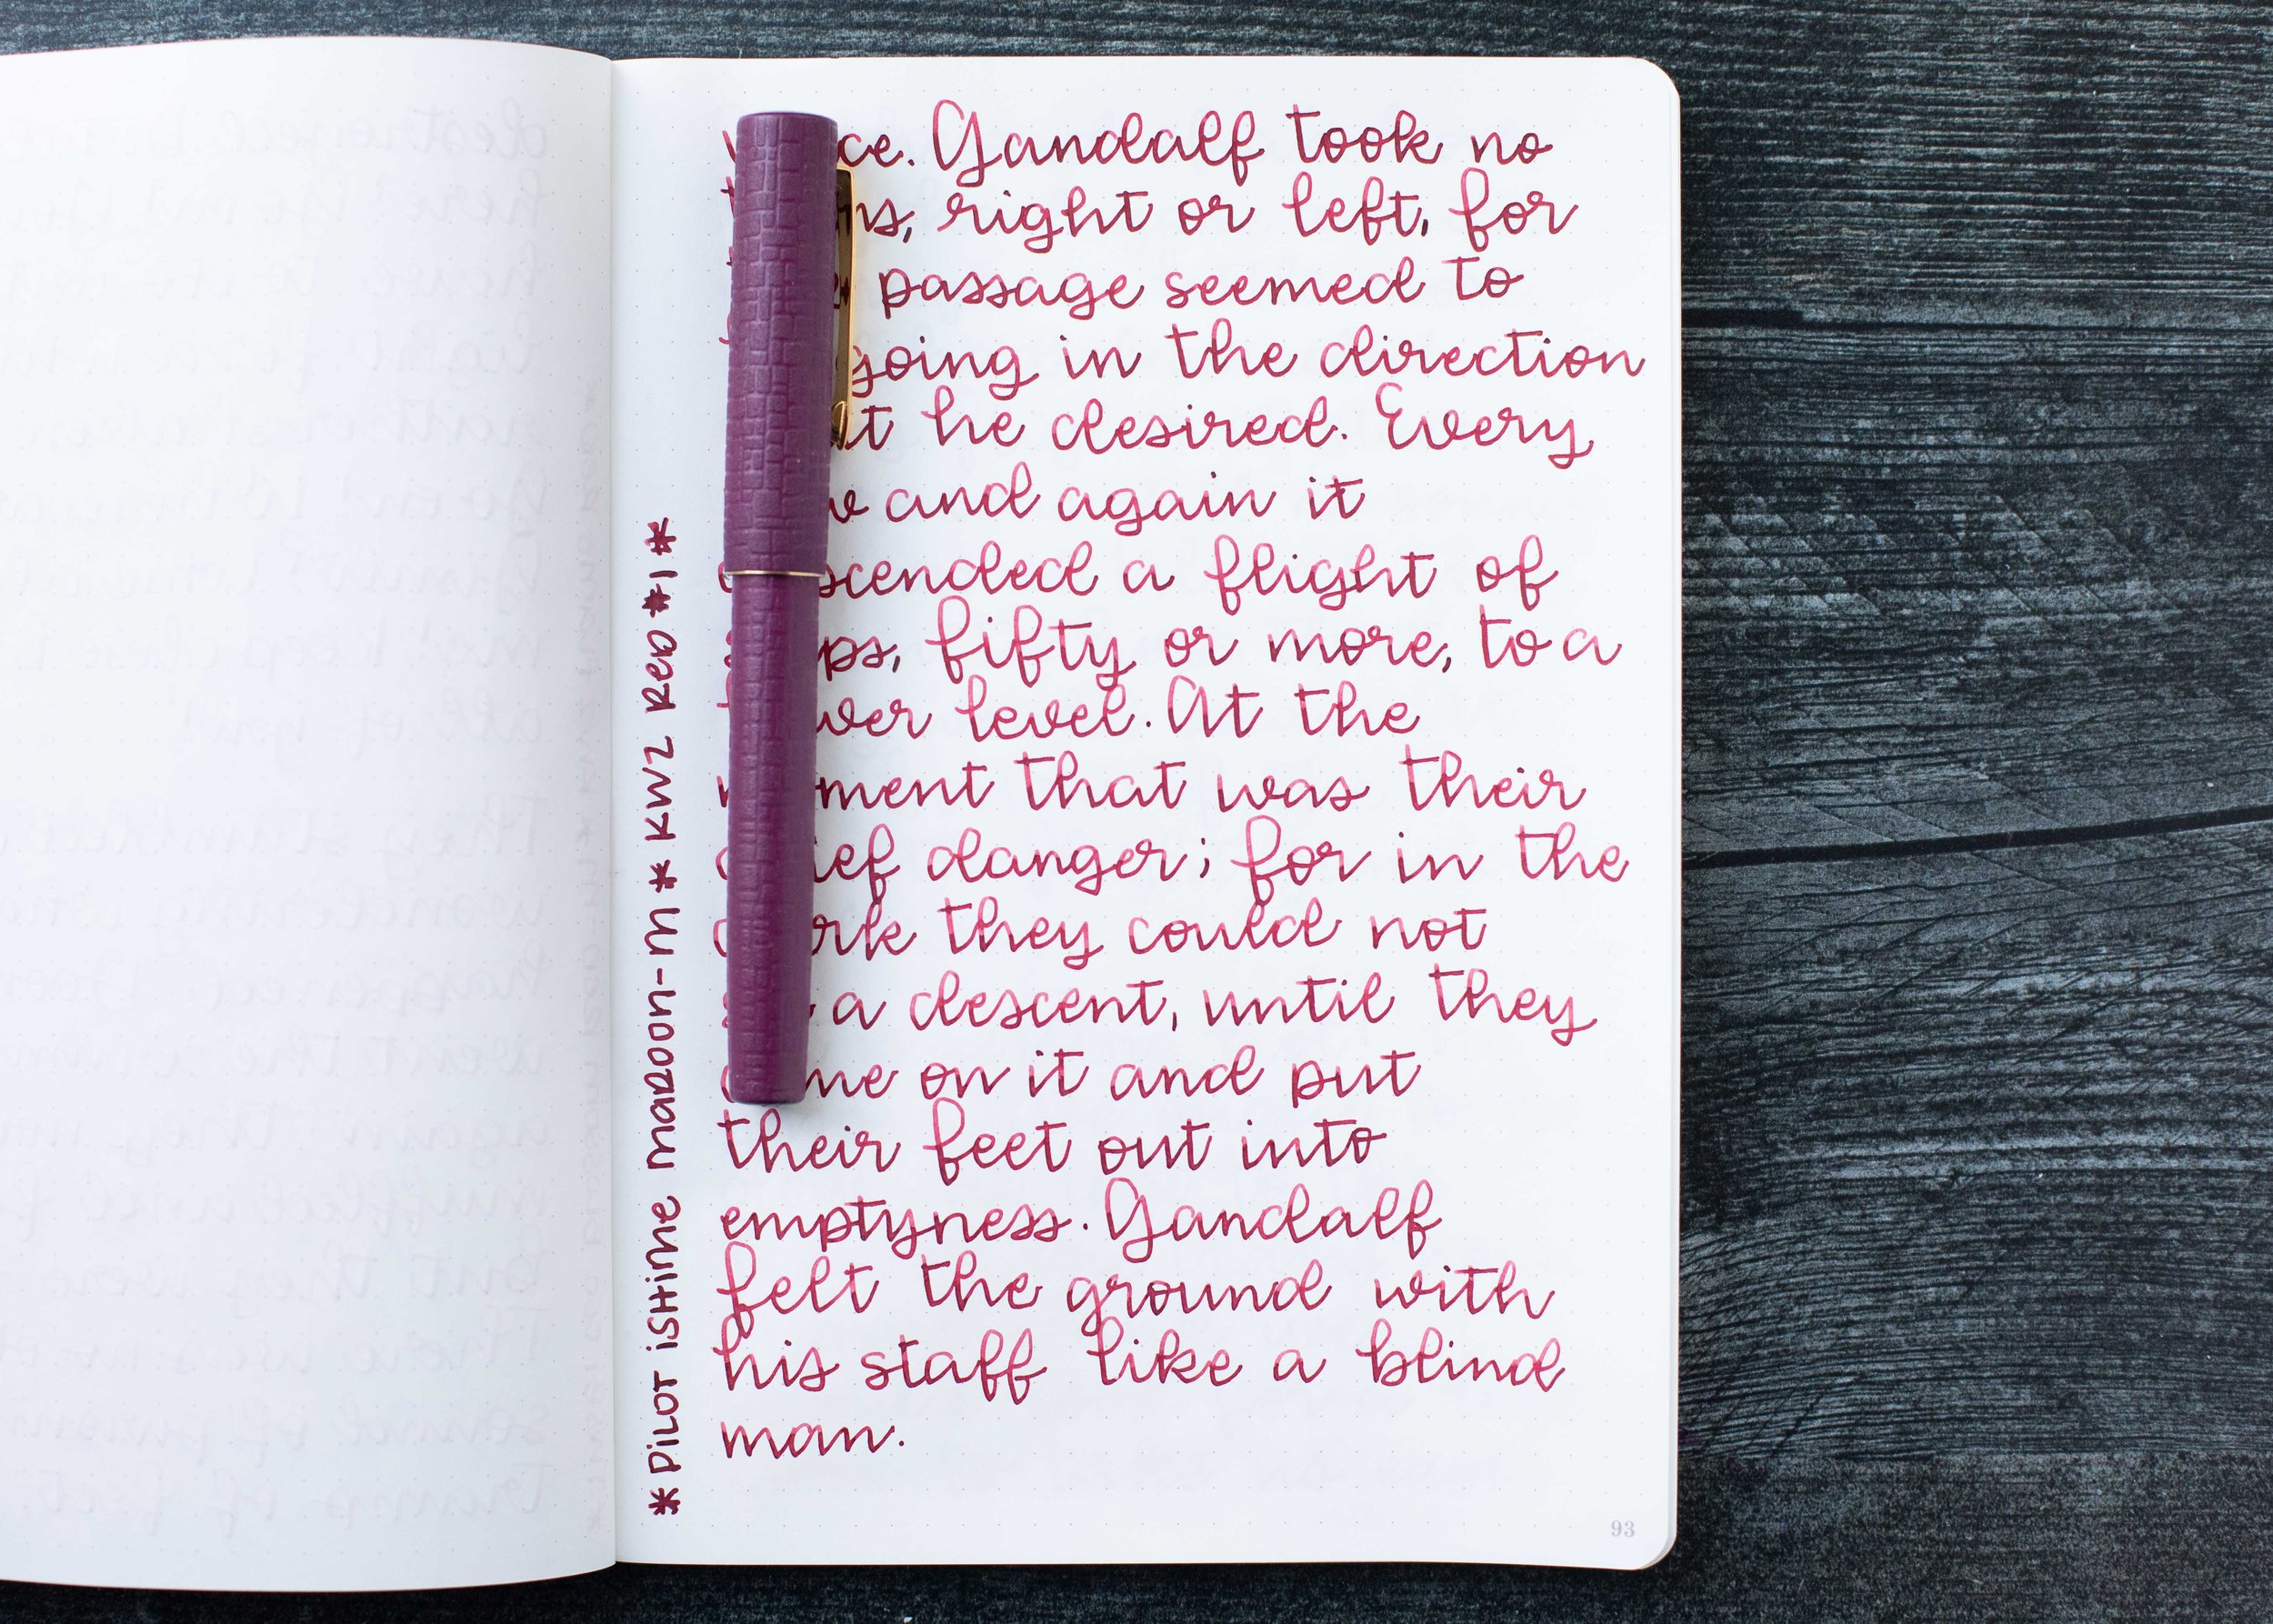 ce. Gandalf took no
ns, right or left, for
passage seemed to
going in the direction
he desired. Every
and again it
scended a flight of
ps, fifty or more, to a
wer level. At the
ment that was their
ief danger; for in the
rk they could not
a descent, until they
me on it and put
their feet out into
emptyness. Gandalf
felt the ground with
his staff like a blind
man.
*PILOT ISHIME MAROON-M * KWZ RED #1*
93